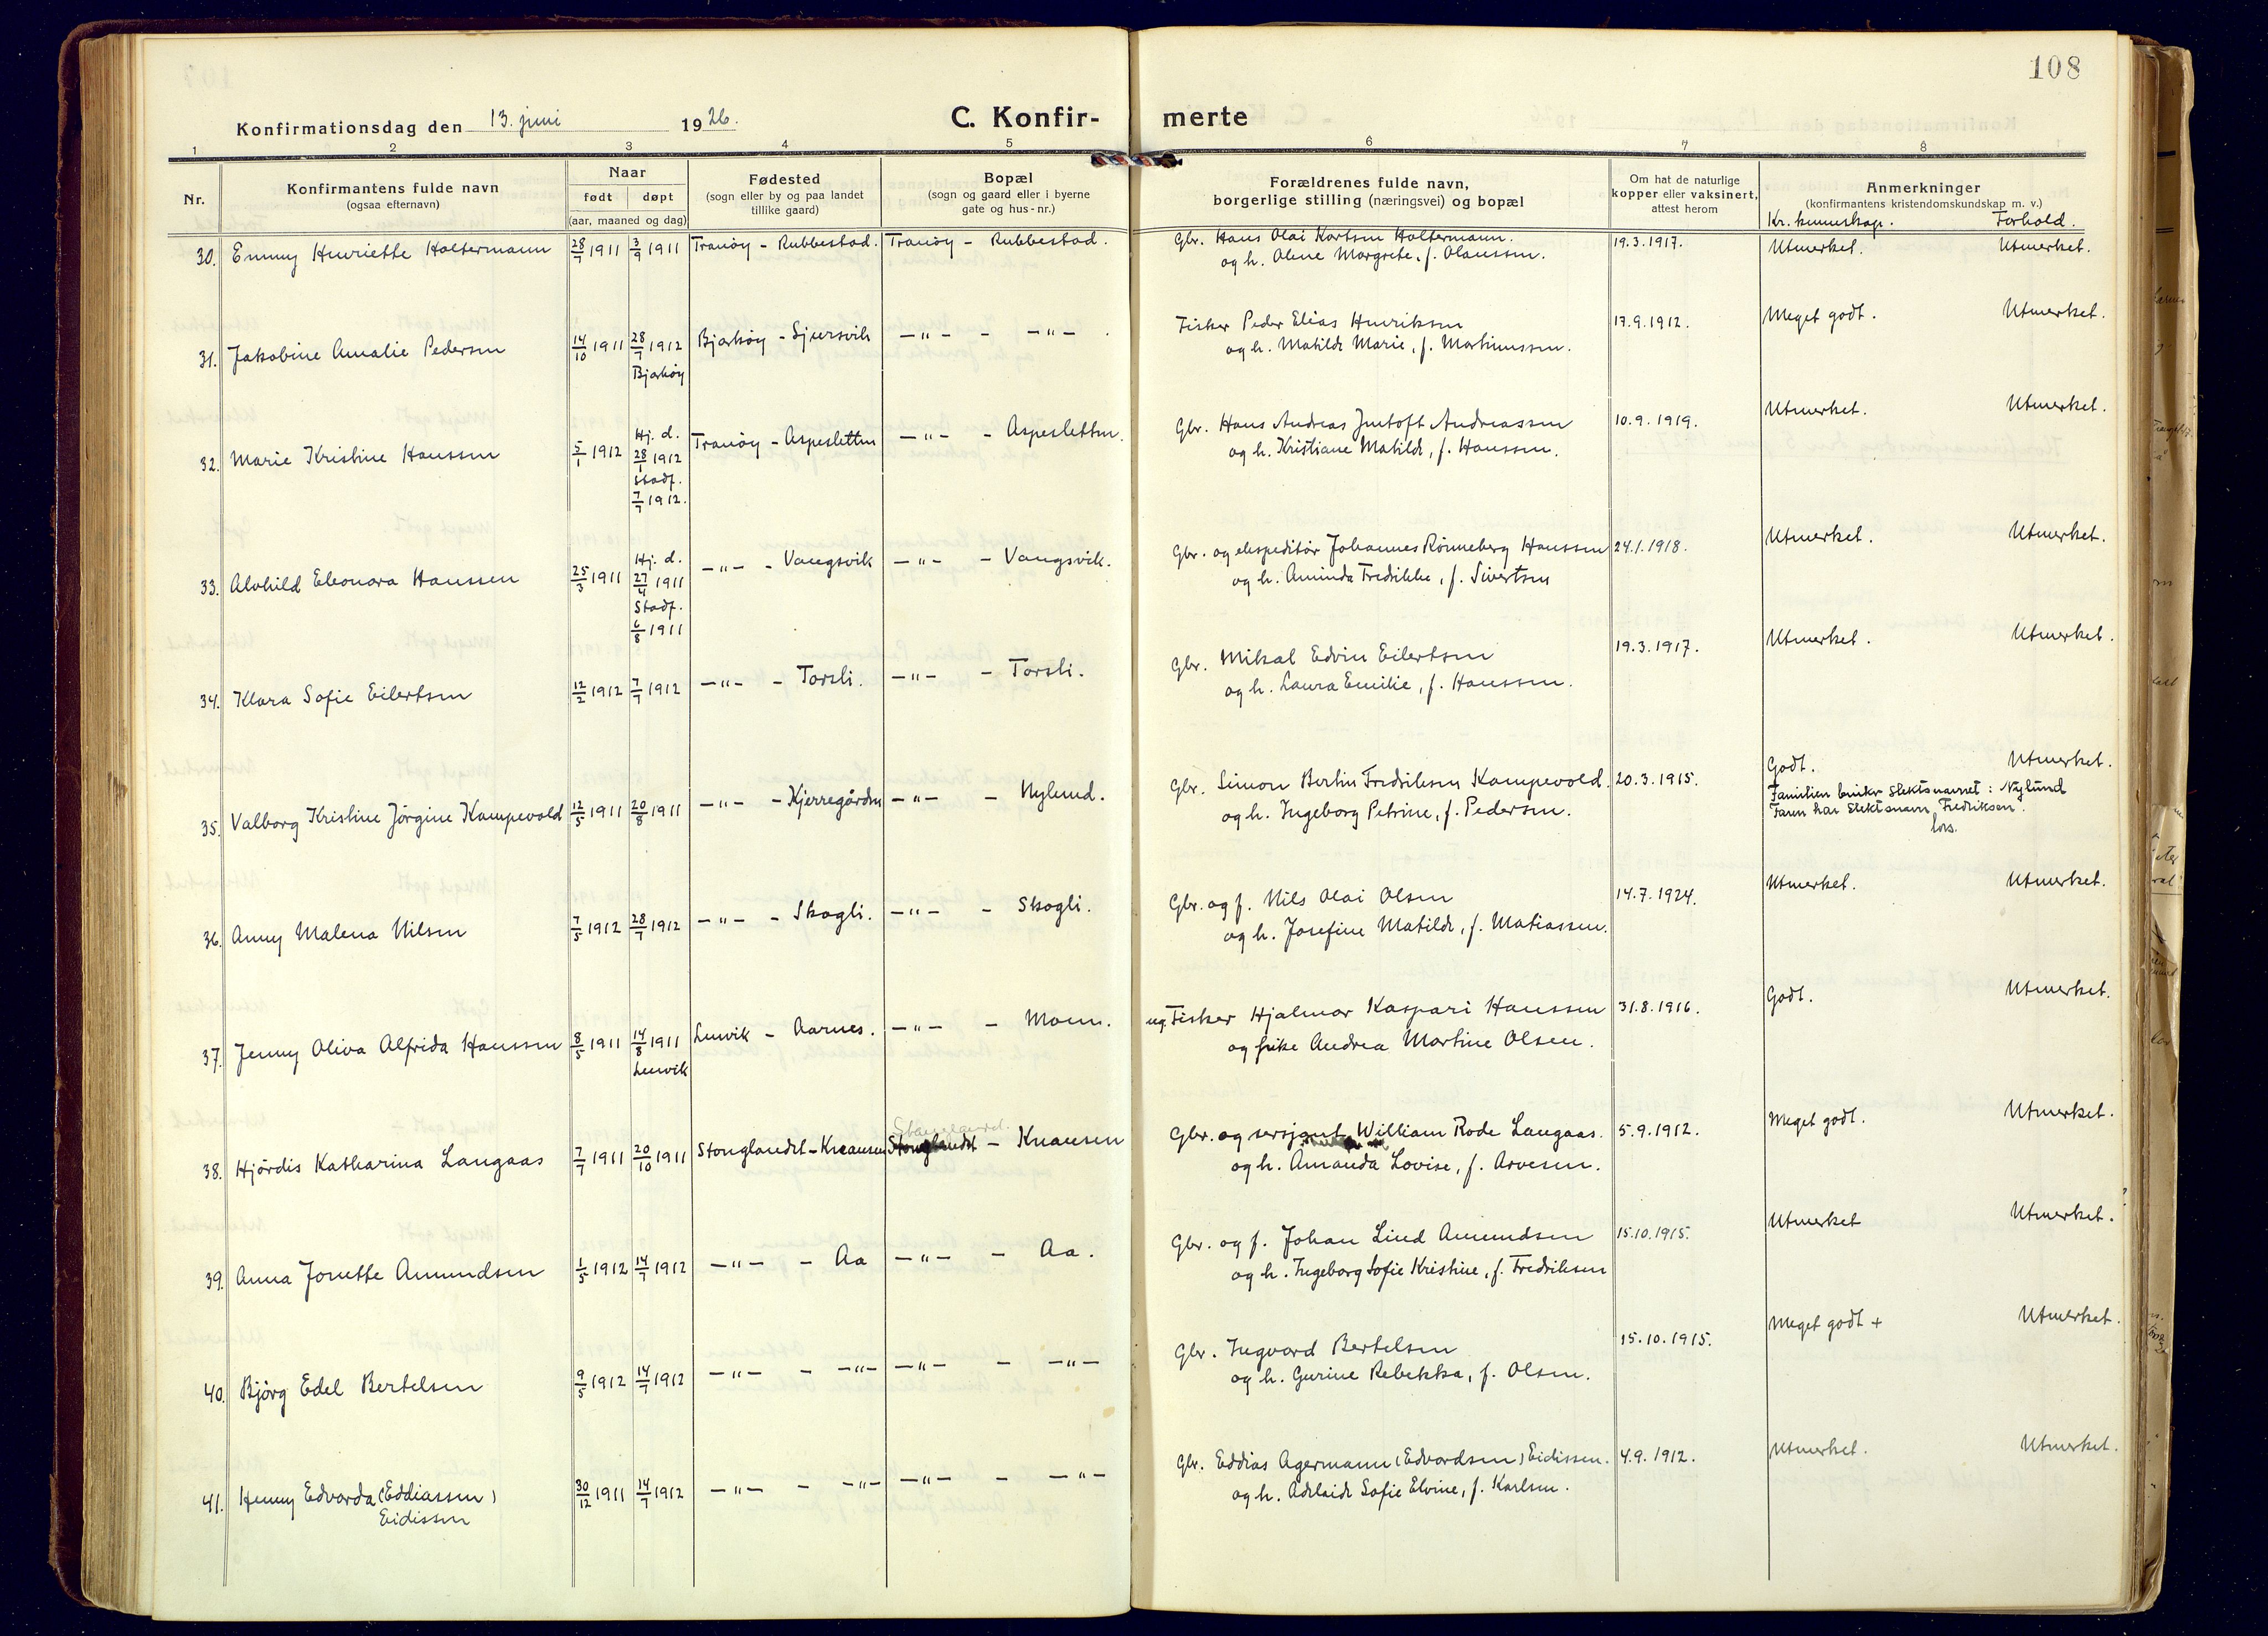 108
Konfirmationsdag den 13. juni 1926.
C. Konfir- merte
1 2 3 4 5 6 7 8
Nr.
Konfirmantens fulde navn
(ogsaa efternavn)
Naar
født døpt
(aar, maaned og dag)
Fødested
(sogn eller by og paa landet
tillike gaard)
Bopæl
(sogn og gaard eller i byerne
gate og hus-nr.)
Forældrenes fulde navn,
borgerlige stilling (næringsvei) og bopæl
Om hat de naturlige
kopper eller vaksinert,
attest herom
Anmerkninger
(konfirmantens kristendomskundskap m. v.)
Kr. kunnskap. Forhold.
30. Emmy Henriette Holtermann 28/7 1911 3/9 1911 Tranøy - Rubbestad. Tranøy - Rubbestad. Gbr. Hans Olai Kortsen Holtermann. 19.3.1917. Utmerket. Utmerket.
og h. Oline Margrete, f. Olaussen.
31. Jakobine Amalie Pedersen 14/10 1911 28/7 1912 Bjarkøy - Sjursvik -"- - -"- . Fisker Peder Elias Henriksen 17.9.1912. Meget godt. Utmerket.
Bjarkøy og h. Matilde Marie, f. Martinussen.
32. Marie Kristine Hanssen 5/1 1912 Hj. d. 28/1 1912 Tranøy - Aspesletten -"- - Aspesletten. Gbr. Hans Andreas Jentoft Andreassen 10.9.1919. Utmerket. Utmerket.
stadf. og h. Kristiane Matilde, f. Hanssen.
7/7 1912.
33. Alvhild Eleonora Hanssen 25/3 1911 Hj. d. 27/4 1911 -"- - Vangsvik -"- - Vangsvik. Gbr. og ekspeditør Johannes Rønneberg Hanssen 24.1.1918. Utmerket. Utmerket.
Stadf. og h. Aminda Fredrikke, f. Sivertsen
6/8 1911
34. Klara Sofie Eilertsen 12/2 1912 7/7 1912 -"- - Torsli. -"- - Torsli. Gbr. Mikal Edvin Eilertsen 19.3.1917. Utmerket. Utmerket.
og h. Laura Emilie, f. Hanssen.
35. Valborg Kristine Jørgine Kampevold 12/5 1911 20/8 1911 -"- - Kjerregården -"- - Nylund. Gbr. Simon Bertin Fredriksen Kampevold. 20.3.1915. Godt. Utmerket.
og h. Ingeborg Petrine, f. Pedersen. Familien bruker slektsnavnet: Nylund
Faren har slektsnavn Fredriksen.
36. Anny Malena Nilsen 7/5 1912 28/7 1912 -"- - Skogli. -"- - Skogli. Gbr. og f. Nils Olai Olsen 14.7.1924. Utmerket. Utmerket.
og h. Josefine Matilde, f. Matiassen.
37. Jenny Oliva Alfrida Hanssen 8/5 1911 14/8 1911 Lenvik - Aarnes. -"- - Moen. ug. Fisker Hjalmar Kaspari Hanssen 31.8.1916. Godt. Utmerket.
Lenvik og pike Andrea Martine Olsen.
38. Hjördis Katharina Langaas 7/7 1911 20/10 1911 Stonglandet - Knausen Stonglandet - Knausen Gbr. og sersjant William Rode Langaas. 5.9.1912. Meget godt. Utmerket.
og h. Amanda Lovise, f. Arvesen.
39. Anna Jonette Amundsen 1/5 1912 14/7 1912 -"- - Aa -"- - Aa. Gbr. og f. Johan Lind Amundsen 15.10.1915. Utmerket Utmerket.
og h. Ingeborg Sofie Kristine, f. Fredriksen
40. Björg Edel Bertelsen 9/5 1912 14/7 1912 -"- - -"- -"- - -"- Gbr. Ingvard Bertelsen 15.10.1915. Meget godt + Utmerket.
og h. Gurine Rebekka, f. Olsen.
41. Henny Edvarda (Eddiassen) 30/12 1911 14/7 1912 -"- - -"- -"- - -"- Gbr. Eddias Agermann (Edvardsen) Eidissen. 4.9.1912. Utmerket. Utmerket.
Eidissen og h. Adelaide Sofie Elvine, f. Karlsen.